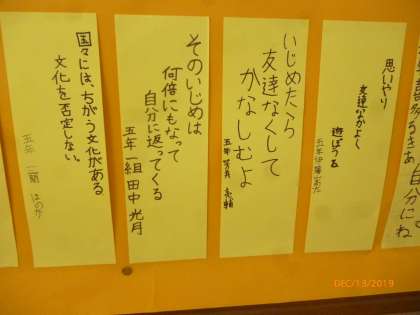 思いやり
友達なかよし
遊ぼうね
いじめたら
友達なくして
かなしむよ
そのいじめは
何倍にもなって
自分に返ってくる
五年一組 田中 光月
国々には、ちがう文化がある
文化を否定しない。
五年 二関 はのか
DEC/13/2019